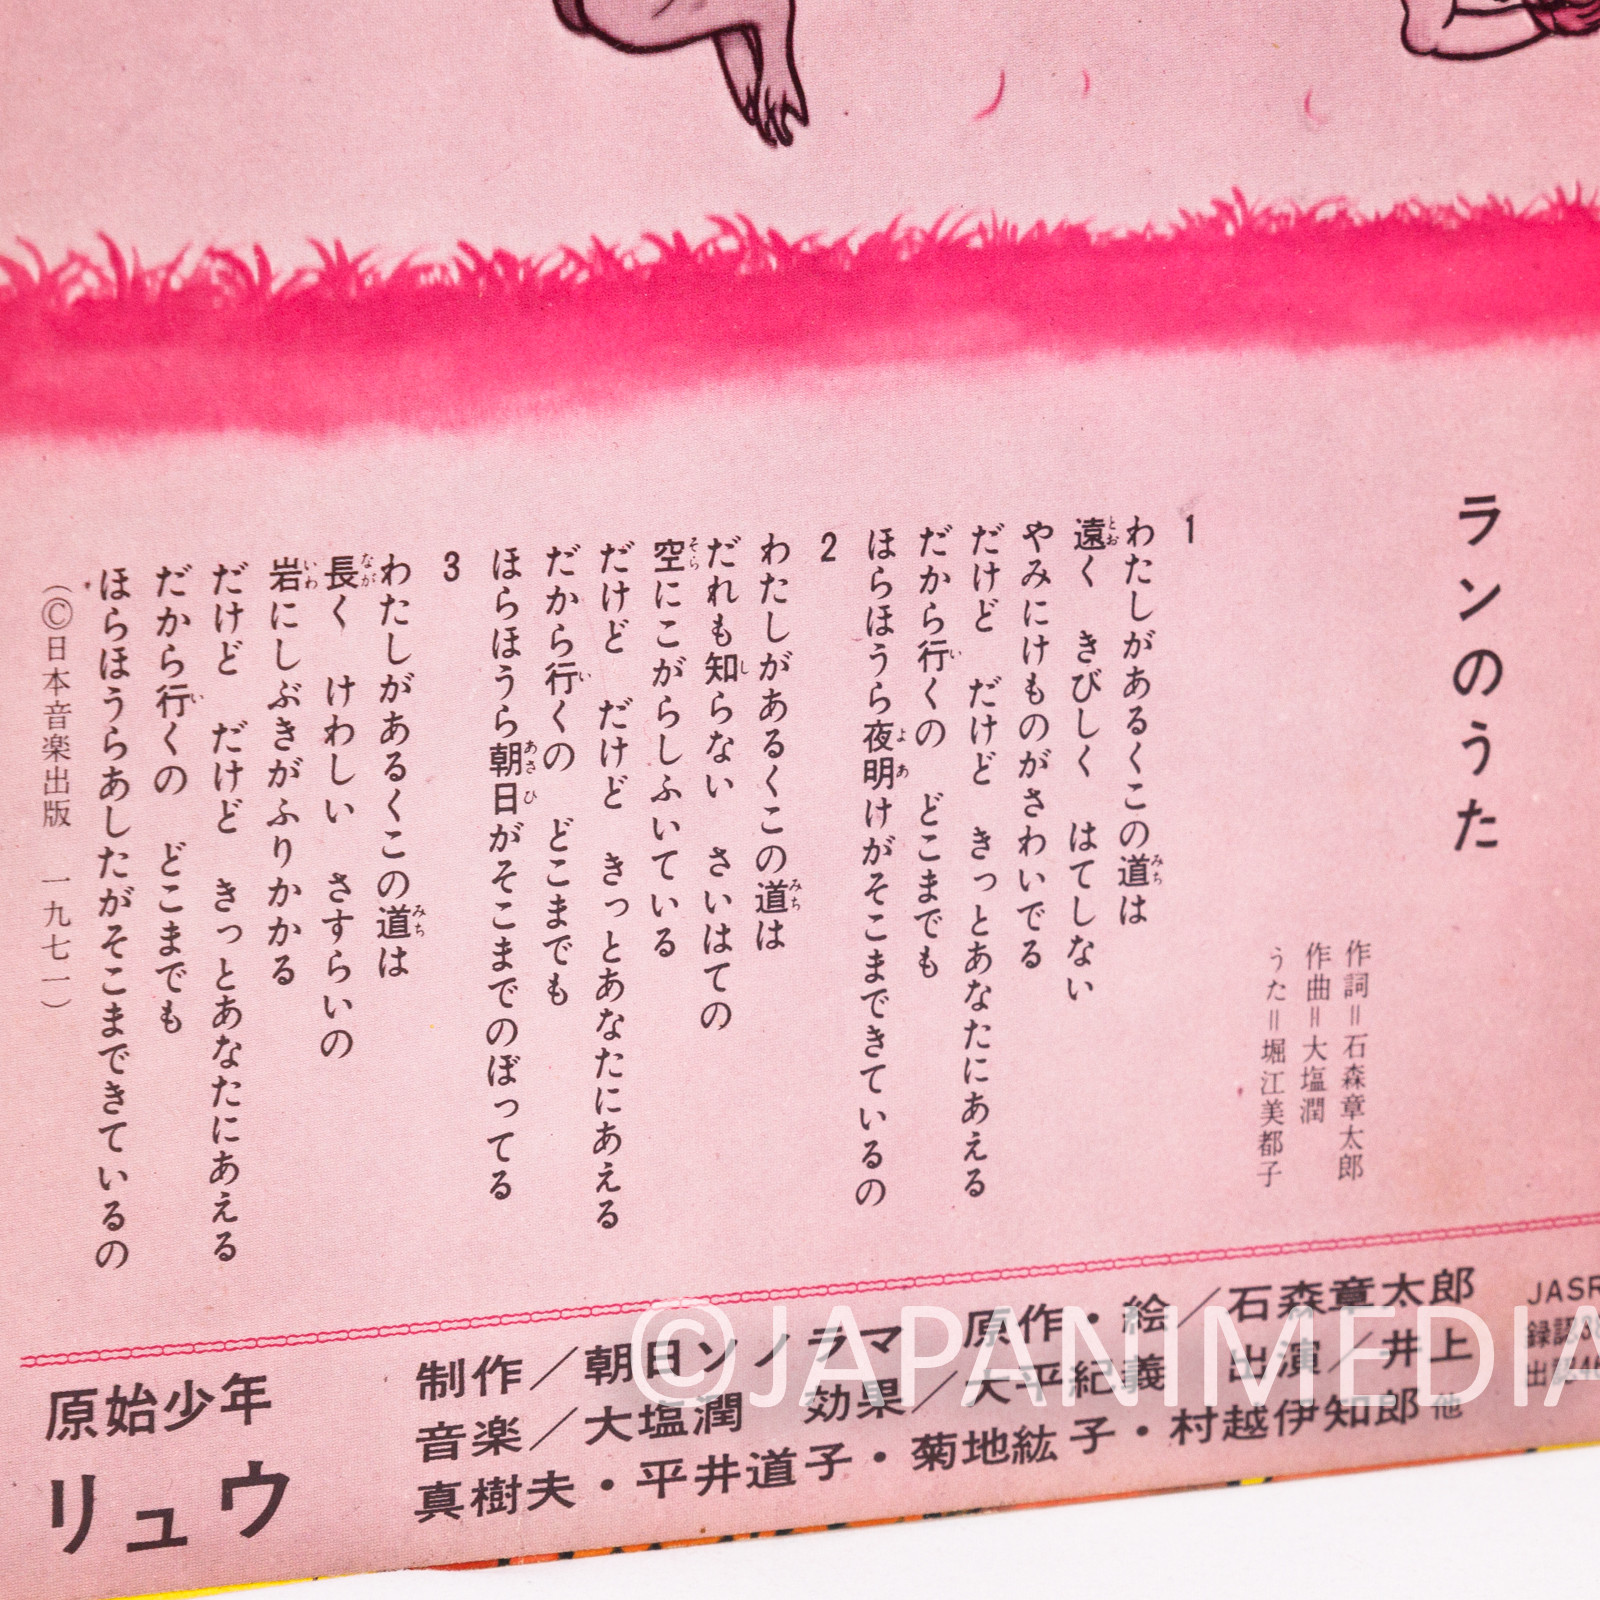 ランのうた
作詞＝石森章太郎
作曲＝大塩潤
うた＝堀江美都子
1
わたしがあるくこの道は
遠く　きびしく　はてしない
やみにけものがさわいでる
だけど　だけど　きっとあなたにあえる
だから行くの　どこまでも
ほらほうら夜明けがそこまできているの
2
わたしがあるくこの道は
だれも知らない　さいはての
空にこがらしふいている
だけど　だけど　きっとあなたにあえる
だから行くの　どこまでも
ほらほうら朝日がそこまでのぼってる
3
わたしがあるくこの道は
長く　けわしい　さすらいの
岩にしぶきがふりかかる
だけど　だけど　きっとあなたにあえる
だから行くの　どこまでも
ほらほうらあしたがそこまできているの
（©日本音楽出版　一九七一）
原始少年
リュウ
制作／朝日ソノラマ　原作・絵／石森章太郎
音楽／大塩潤　効果／大平紀義　出演／井上
真樹夫・平井道子・菊地紘子・村越伊知郎 他
©JAPANIMEDIA